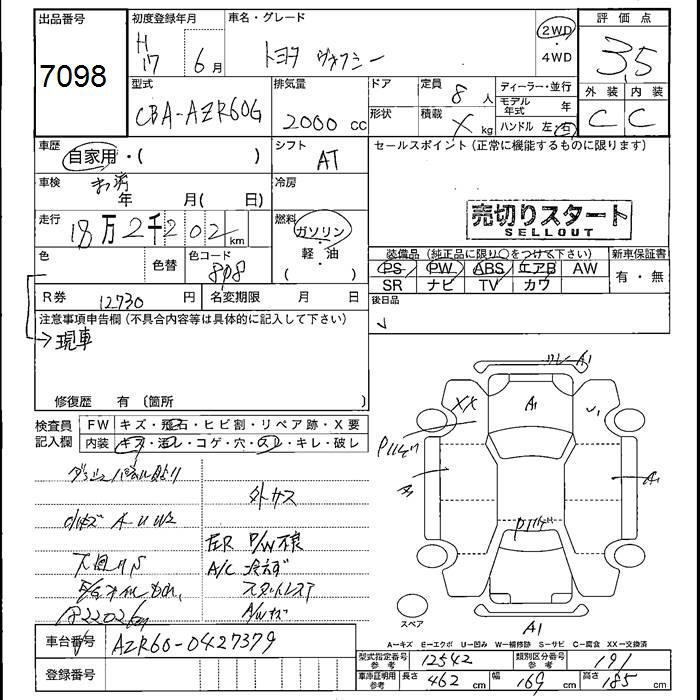 出品番号
7098
初度登録年月
H 17 6月
車名・グレード
トヨタ ヴォクシー
2WD
・
4WD
評価点
3.5
外装 内装
C C
型式
CBA-AZR60G
排気量
2000 cc
ドア
形状
定員 8人
積載 X kg
ディーラー・並行
モデル年式 年
ハンドル 左・右
車歴
自家用・( )
シフト
AT
セールスポイント (正常に機能するものに限ります)
車検
年 月( 日)
冷房
走行
18万2千202 km
燃料
ガソリン
・
軽・油
( )
売切りスタート
SELLOUT
色
色替
色コード
808
装備品 (純正品に限り○をつけて下さい)
新車保証書
PS PW ABS エアB AW
SR ナビ TV カワ
有・無
R券 12730 円
名変期限 月 日
後日品
注意事項申告欄 (不具合内容等は具体的に記入して下さい)
→現車
修復歴 有 〔箇所 〕
検査員
記入欄
FW キズ・飛石・ヒビ割・リペア跡・X要
内装 キズ・汚レ・コゲ・穴・スレ・キレ・破レ
外サス
小キズ A U W2
左R P/W不良
下回りS
A/C 冷えず
E/Gオイルもれ
スタットレス
182202km
A/Wキズ
A1
XX
A1
A1
A1
スペア
車台番号
AZR60-0427379
登録番号
A=キズ E=エクボ U=凹み W=補修跡 S=サビ C=腐食 XX=交換済
型式指定番号
参考
12542
類別区分番号
参考
191
車庫証明用
参考
長さ 462 cm
幅 169 cm
高さ 185 cm